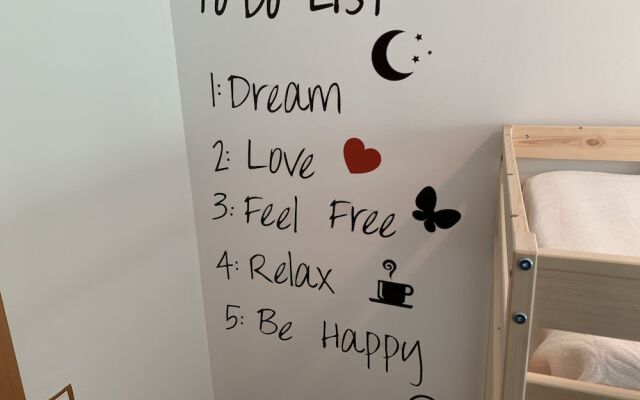 To Do List
1: Dream
2: Love
3: Feel Free
4: Relax
5: Be Happy